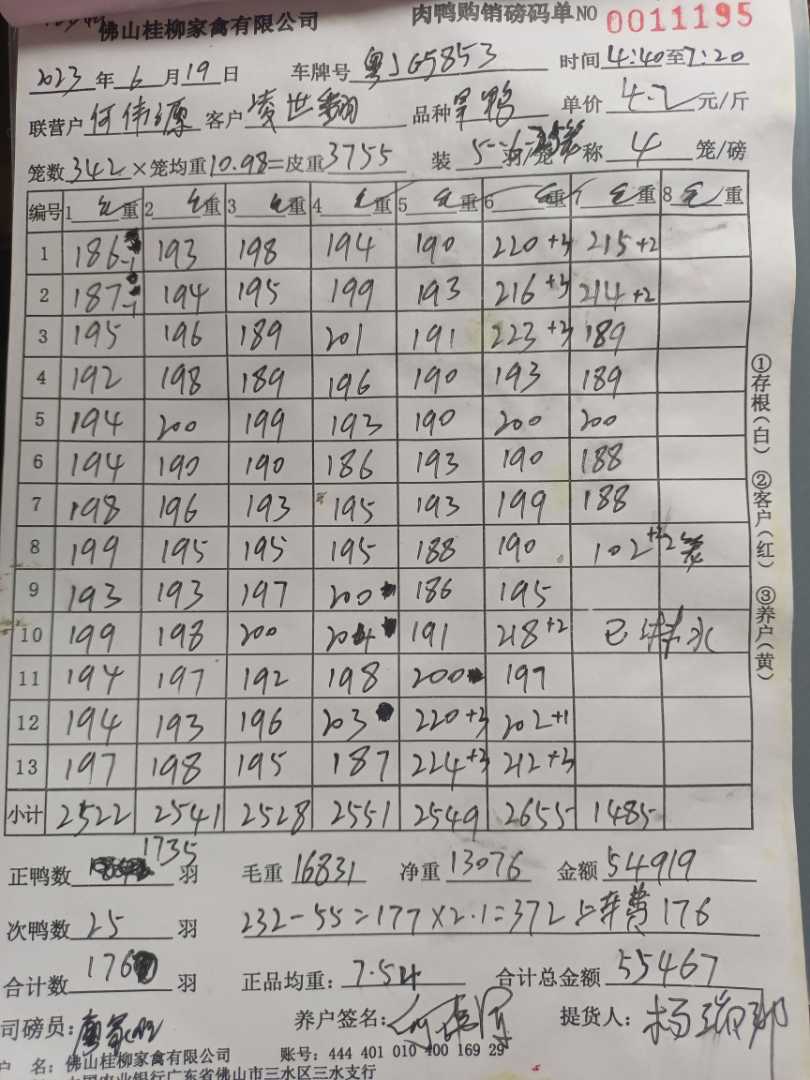 佛山桂柳家禽有限公司 肉鸭购销磅码单 NO 0011195
2023年6月19日 车牌号 粤JG5853 时间 4:40至7:20
联营户 何伟源 客户 凌世翻 品种 旱鸭 单价 4.2元/斤
笼数 342×笼均重10.98=皮重3755 装 5-6 羽/笼 称 4 笼/磅
编号 1 毛重 2 毛重 3 毛重 4 毛重 5 毛重 6 毛重 7 毛重 8 毛重
1 186-1 193 198 194 190 220+3 215+2
2 187-1 194 195 199 193 216+3 214+2
3 195 196 189 201 191 223+3 189
4 192 198 189 196 190 193 189
5 194 200 199 193 190 200 200
6 194 190 190 186 193 190 188
7 198 196 193 195 193 199 188
8 199 195 195 195 188 190 102+2 2笼
9 193 193 197 200 186 195
10 199 198 200 204 191 218+2 已 水
11 194 197 192 198 200 197
12 194 193 196 203 220+3 202+1
13 197 198 195 187 224+3 212+3
小计 2522 2541 2528 2551 2549 2655 1485
正鸭数 1735 羽 毛重 16831 净重 13076 金额 54919
次鸭数 25 羽 232-55=177×2.1=372 车费176
合计数 176 羽 正品均重: 7.54 合计总金额 55467
司磅员: 养户签名: 提货人:
户 名: 佛山桂柳家禽有限公司 账号: 444 401 010 400 169 29
中国农业银行广东省佛山市三水区三水支行
①存根(白) ②客户(红) ③养户(黄)